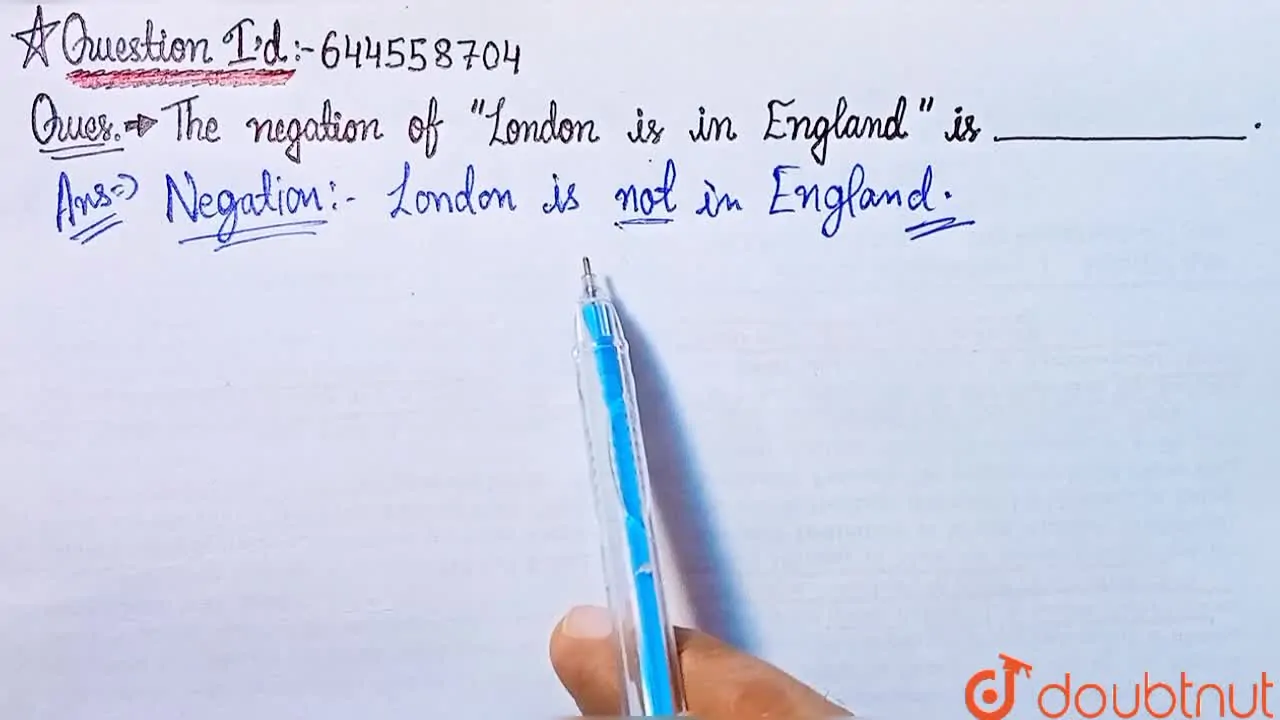 ☆ Question I'd:- 644558704
Ques. ⇒ The negation of "London is in England" is ____________.
Ans ⇒ Negation:- London is not in England.
doubtnut